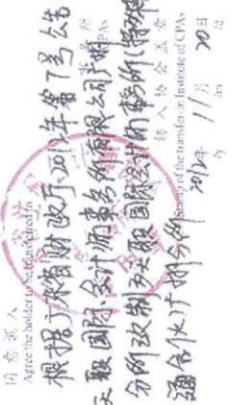 同意调入
Agree the holder to be transferred to
根据广东省财政厅 年第 号公告
天职国际会计师事务所有限公司广州
分所改制为天职国际会计师事务所(特殊
普通合伙)广州分所
转入协会盖章
Stamp of the transfer-in Institute of CPAs
2012年 11月 20日
/y /m /d